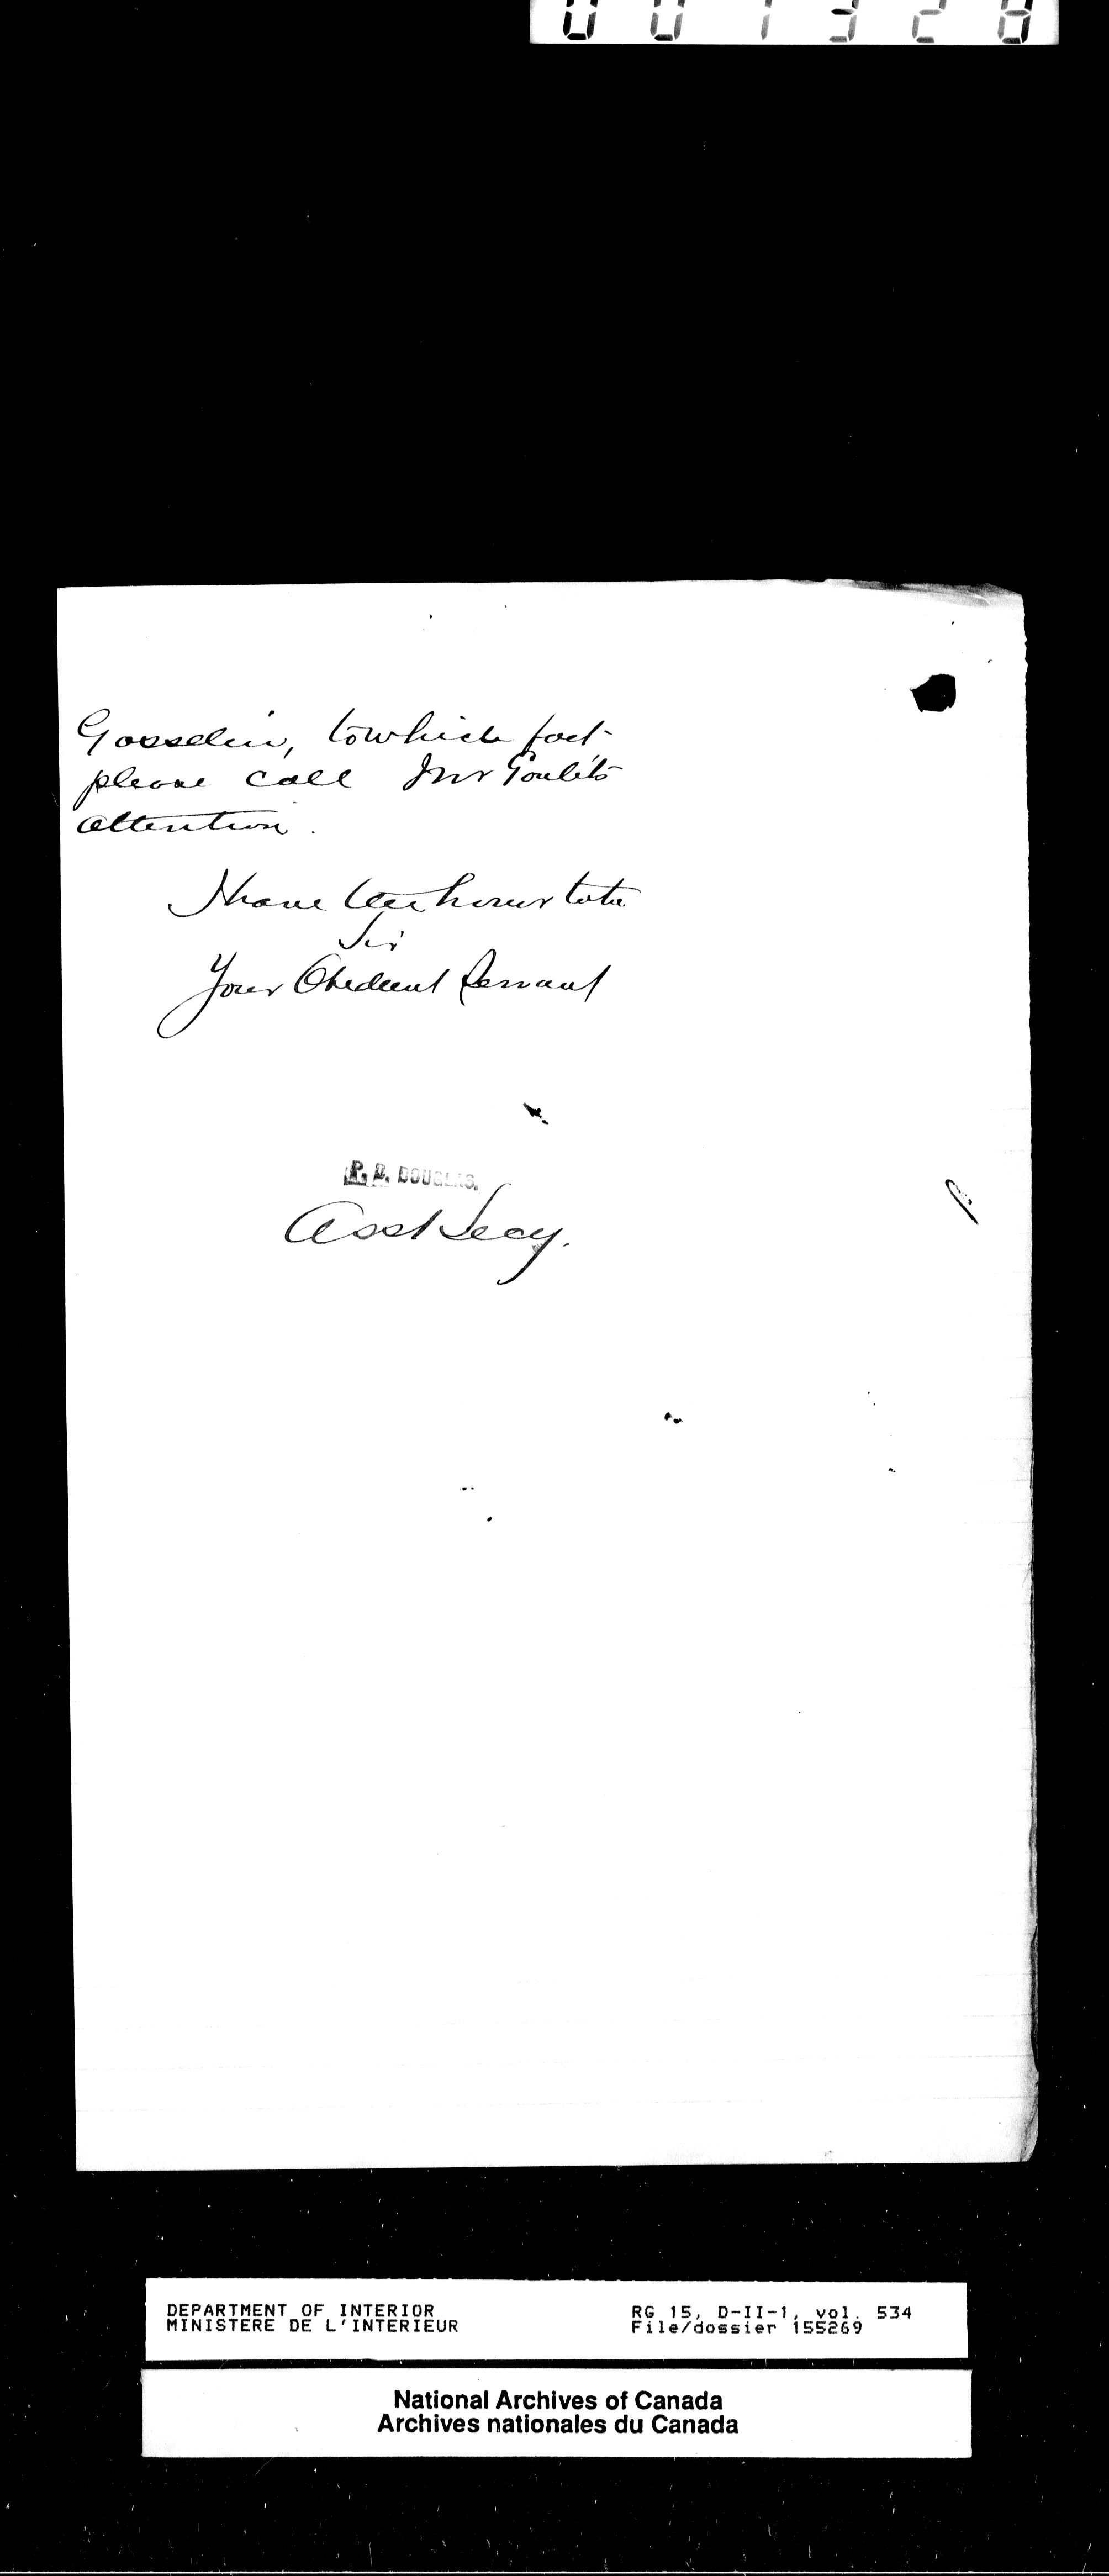 001328
Gosselin, to which fact
please call Mr Goulet's
attention.
I have the honour to be
Sir
Your Obedient Servant
P. B. DOUGLAS.
Asst Secy.
DEPARTMENT OF INTERIOR
MINISTERE DE L'INTERIEUR
RG 15, D-II-1, vol. 534
File/dossier 155269
National Archives of Canada
Archives nationales du Canada